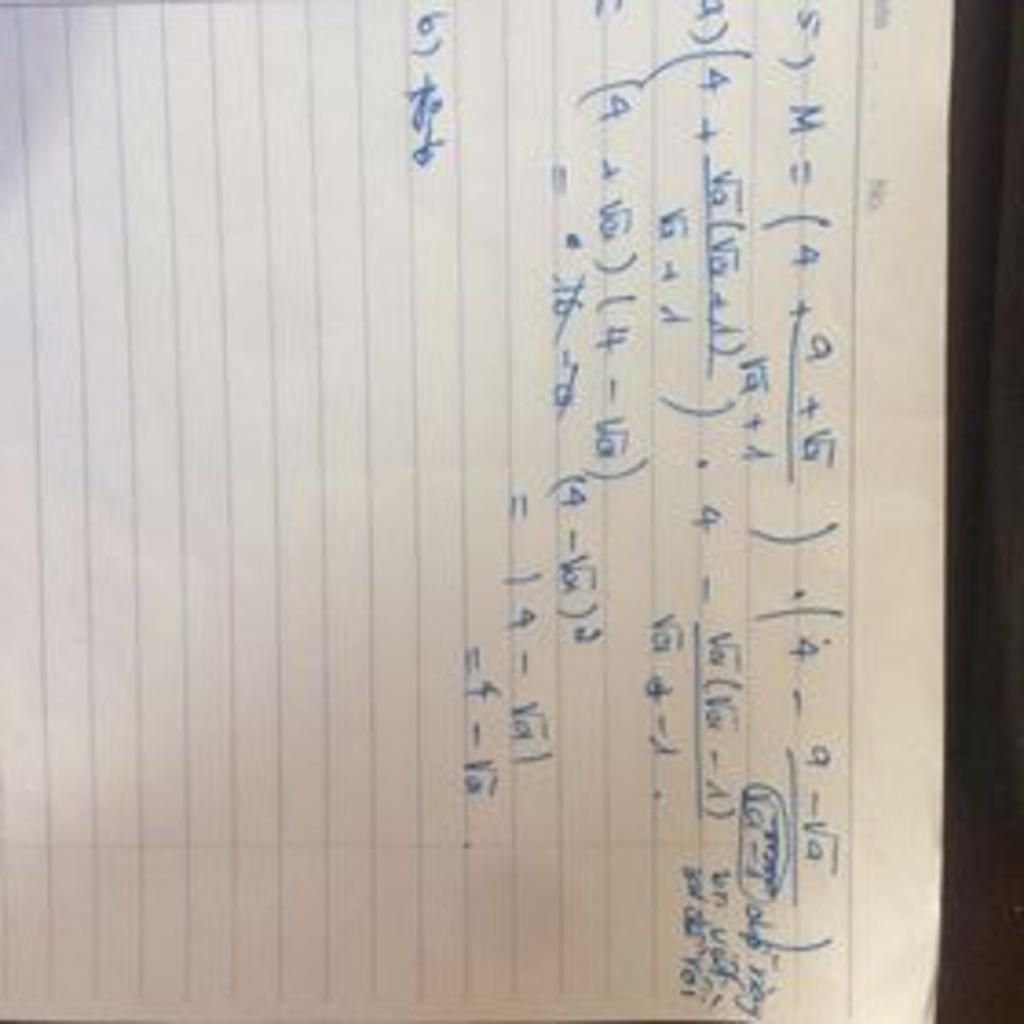 No.
5) M = (4 + (a + √a)/(√a + 1)) · (4 - (a - √a)/(√a - 1))
a) (4 + √a(√a + 1)/(√a + 1)) · 4 - √a(√a - 1)/(√a - 1).
= (4 + √a)(4 - √a)
= 16 - a (4 - √a)²
= |4 - √a|
= 4 - √a.
b)